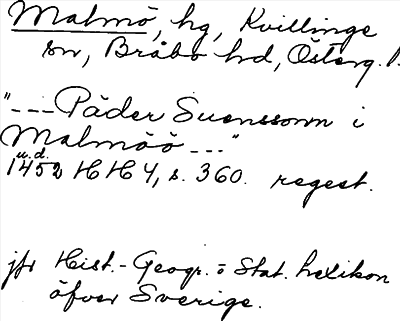 Malmö, hg, Kvillinge
sn, Bråbo hd, Österg. l.
"--- Päder Suensson i
Malmöö ---"
u.d.
1452 HH 4, s. 360. regest.
jfr Hist.-Geogr. o Stat. lexikon
öfver Sverige.